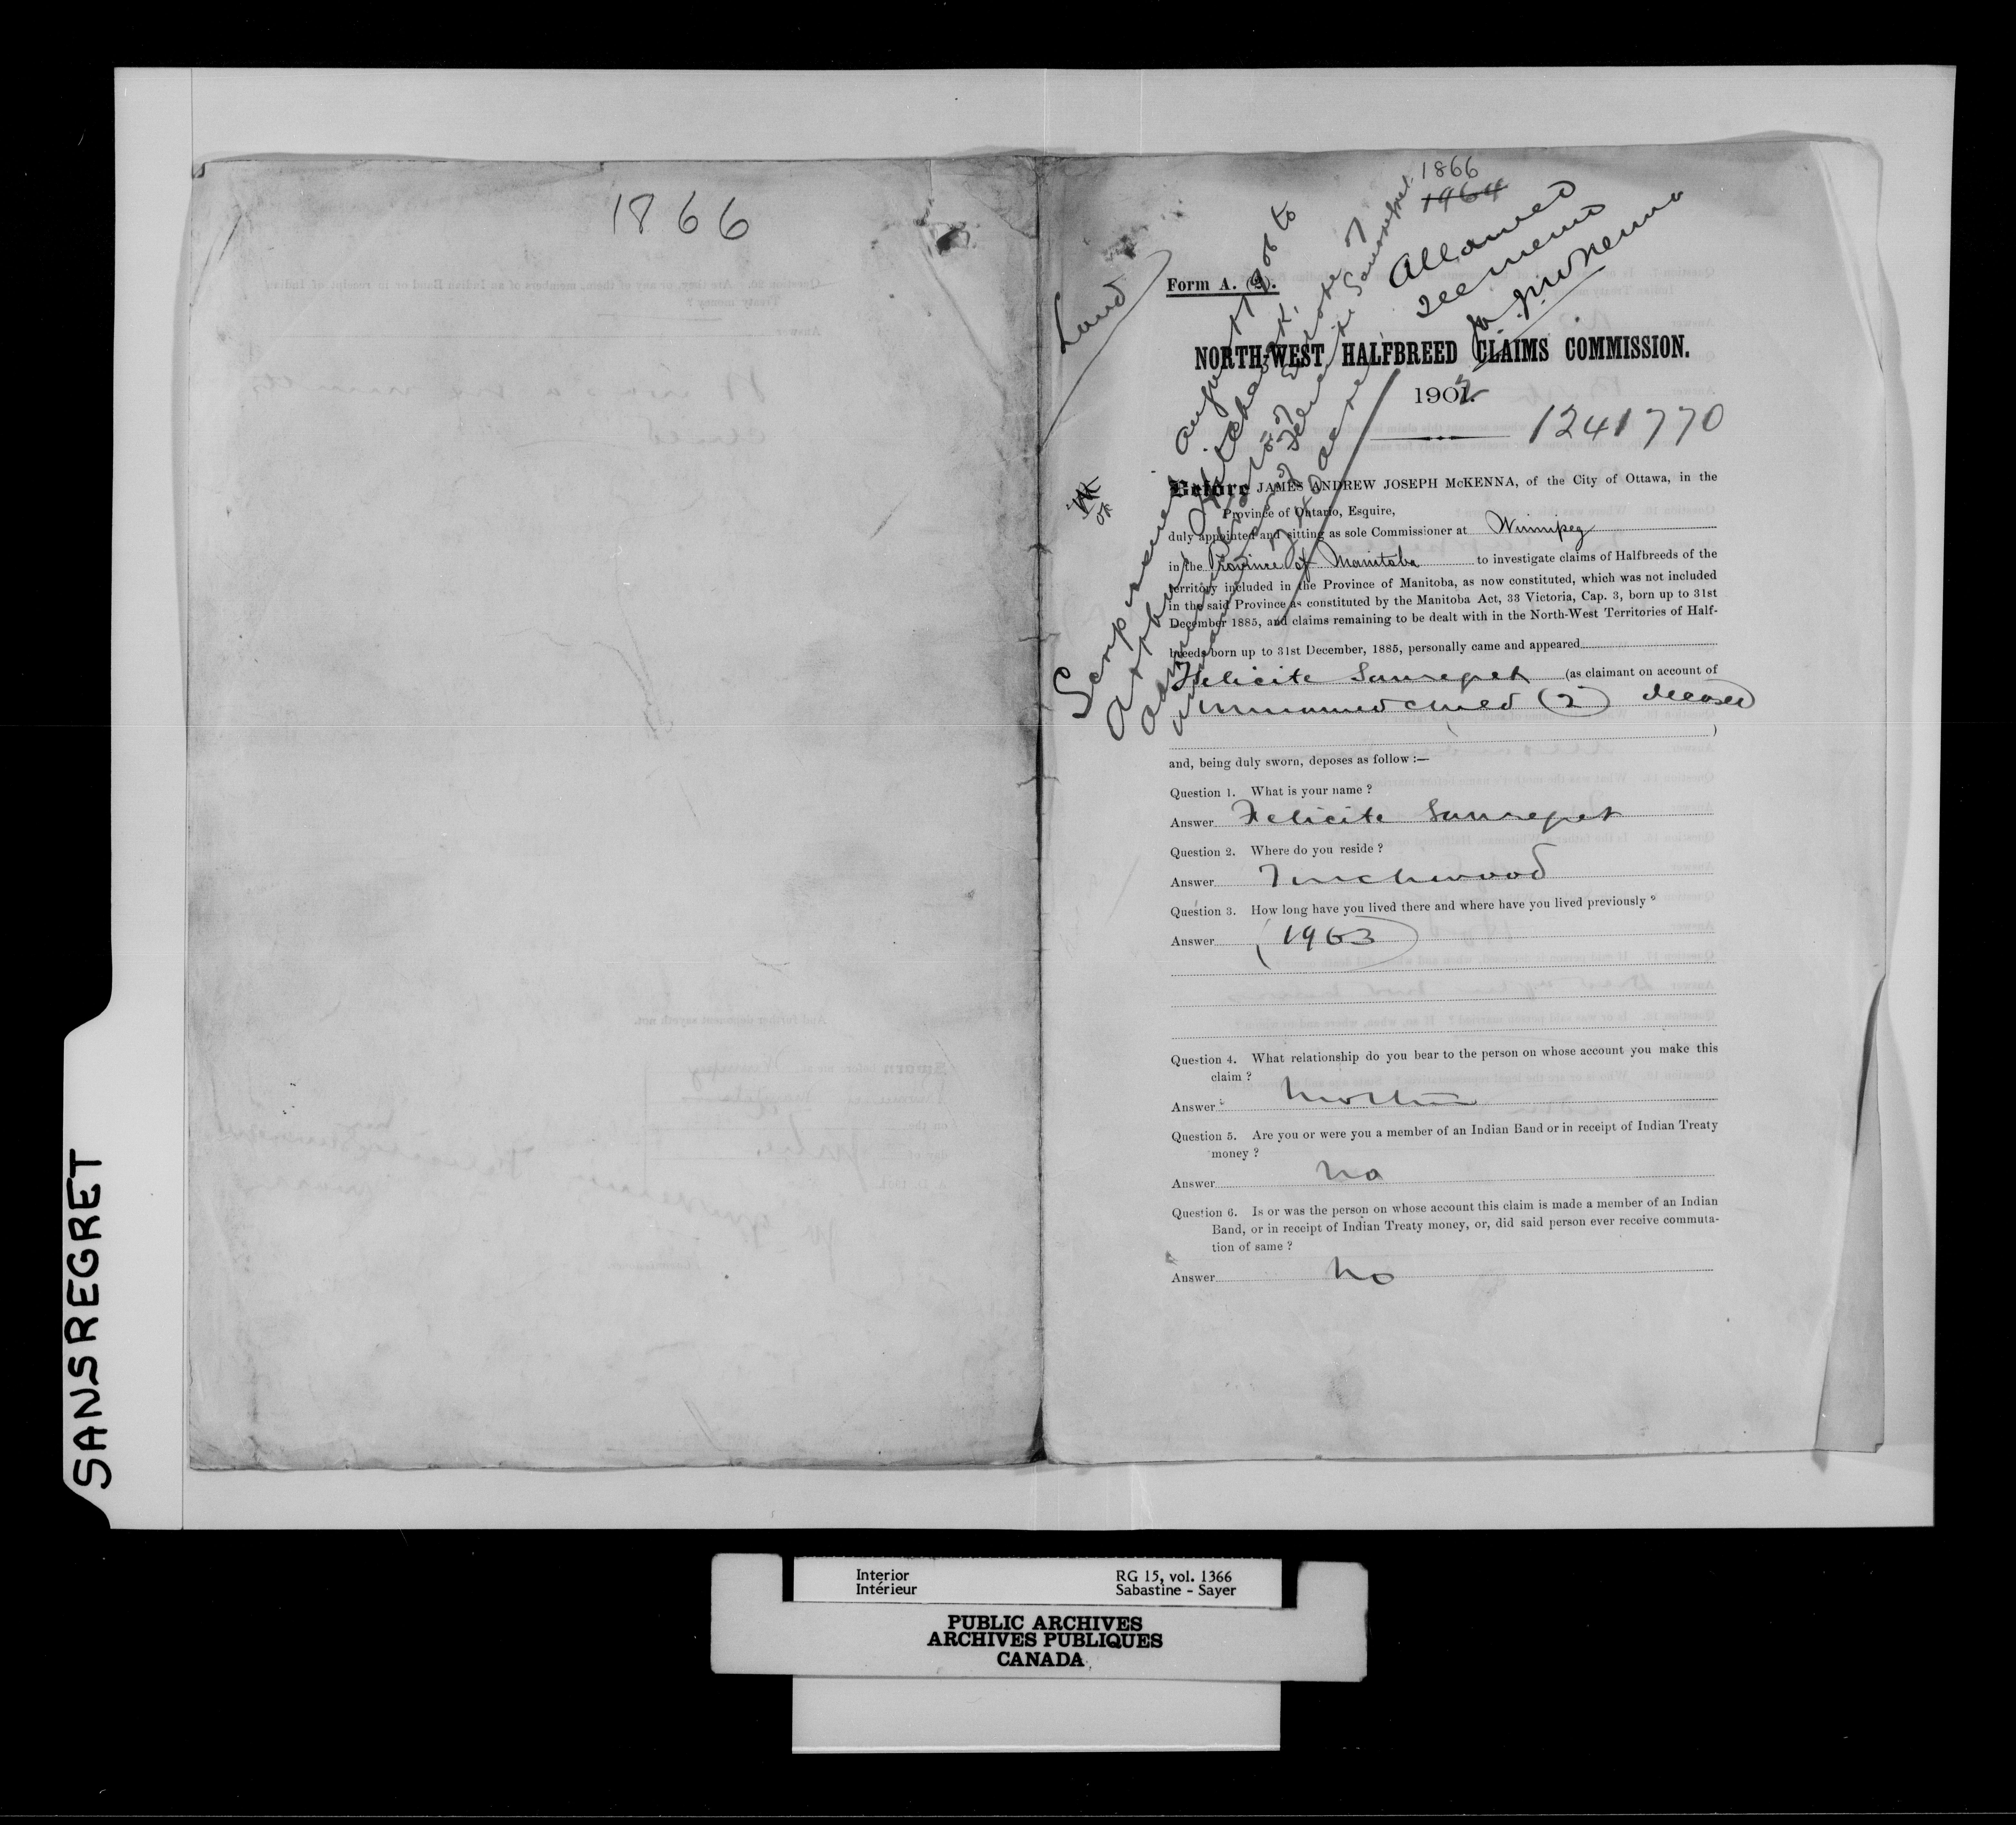 1866
1866
1964
Allowed
see memo
J.A.J. McKenna
Land
Form A. (2).
NORTH-WEST HALFBREED CLAIMS COMMISSION.
1902.
1241770
OK
Before JAMES ANDREW JOSEPH McKENNA, of the City of Ottawa, in the
Province of Ontario, Esquire,
duly appointed and sitting as sole Commissioner at Winnipeg
in the Province of Manitoba to investigate claims of Halfbreeds of the
territory included in the Province of Manitoba, as now constituted, which was not included
in the said Province as constituted by the Manitoba Act, 33 Victoria, Cap. 3, born up to 31st
December 1885, and claims remaining to be dealt with in the North-West Territories of Half-
breeds born up to 31st December, 1885, personally came and appeared
Felicite Sansregret (as claimant on account of
unnamed child (2) deceased
)
and, being duly sworn, deposes as follow :—
Question 1. What is your name ?
Answer Felicite Sansregret
Question 2. Where do you reside ?
Answer Touchwood
Question 3. How long have you lived there and where have you lived previously ?
Answer (1963)
Question 4. What relationship do you bear to the person on whose account you make this
claim ?
Answer Mother
Question 5. Are you or were you a member of an Indian Band or in receipt of Indian Treaty
money ?
Answer No
Question 6. Is or was the person on whose account this claim is made a member of an Indian
Band, or in receipt of Indian Treaty money, or, did said person ever receive commuta-
tion of same ?
Answer No
SANSREGRET
Interior
Intérieur
RG 15, vol. 1366
Sabastine - Sayer
PUBLIC ARCHIVES
ARCHIVES PUBLIQUES
CANADA